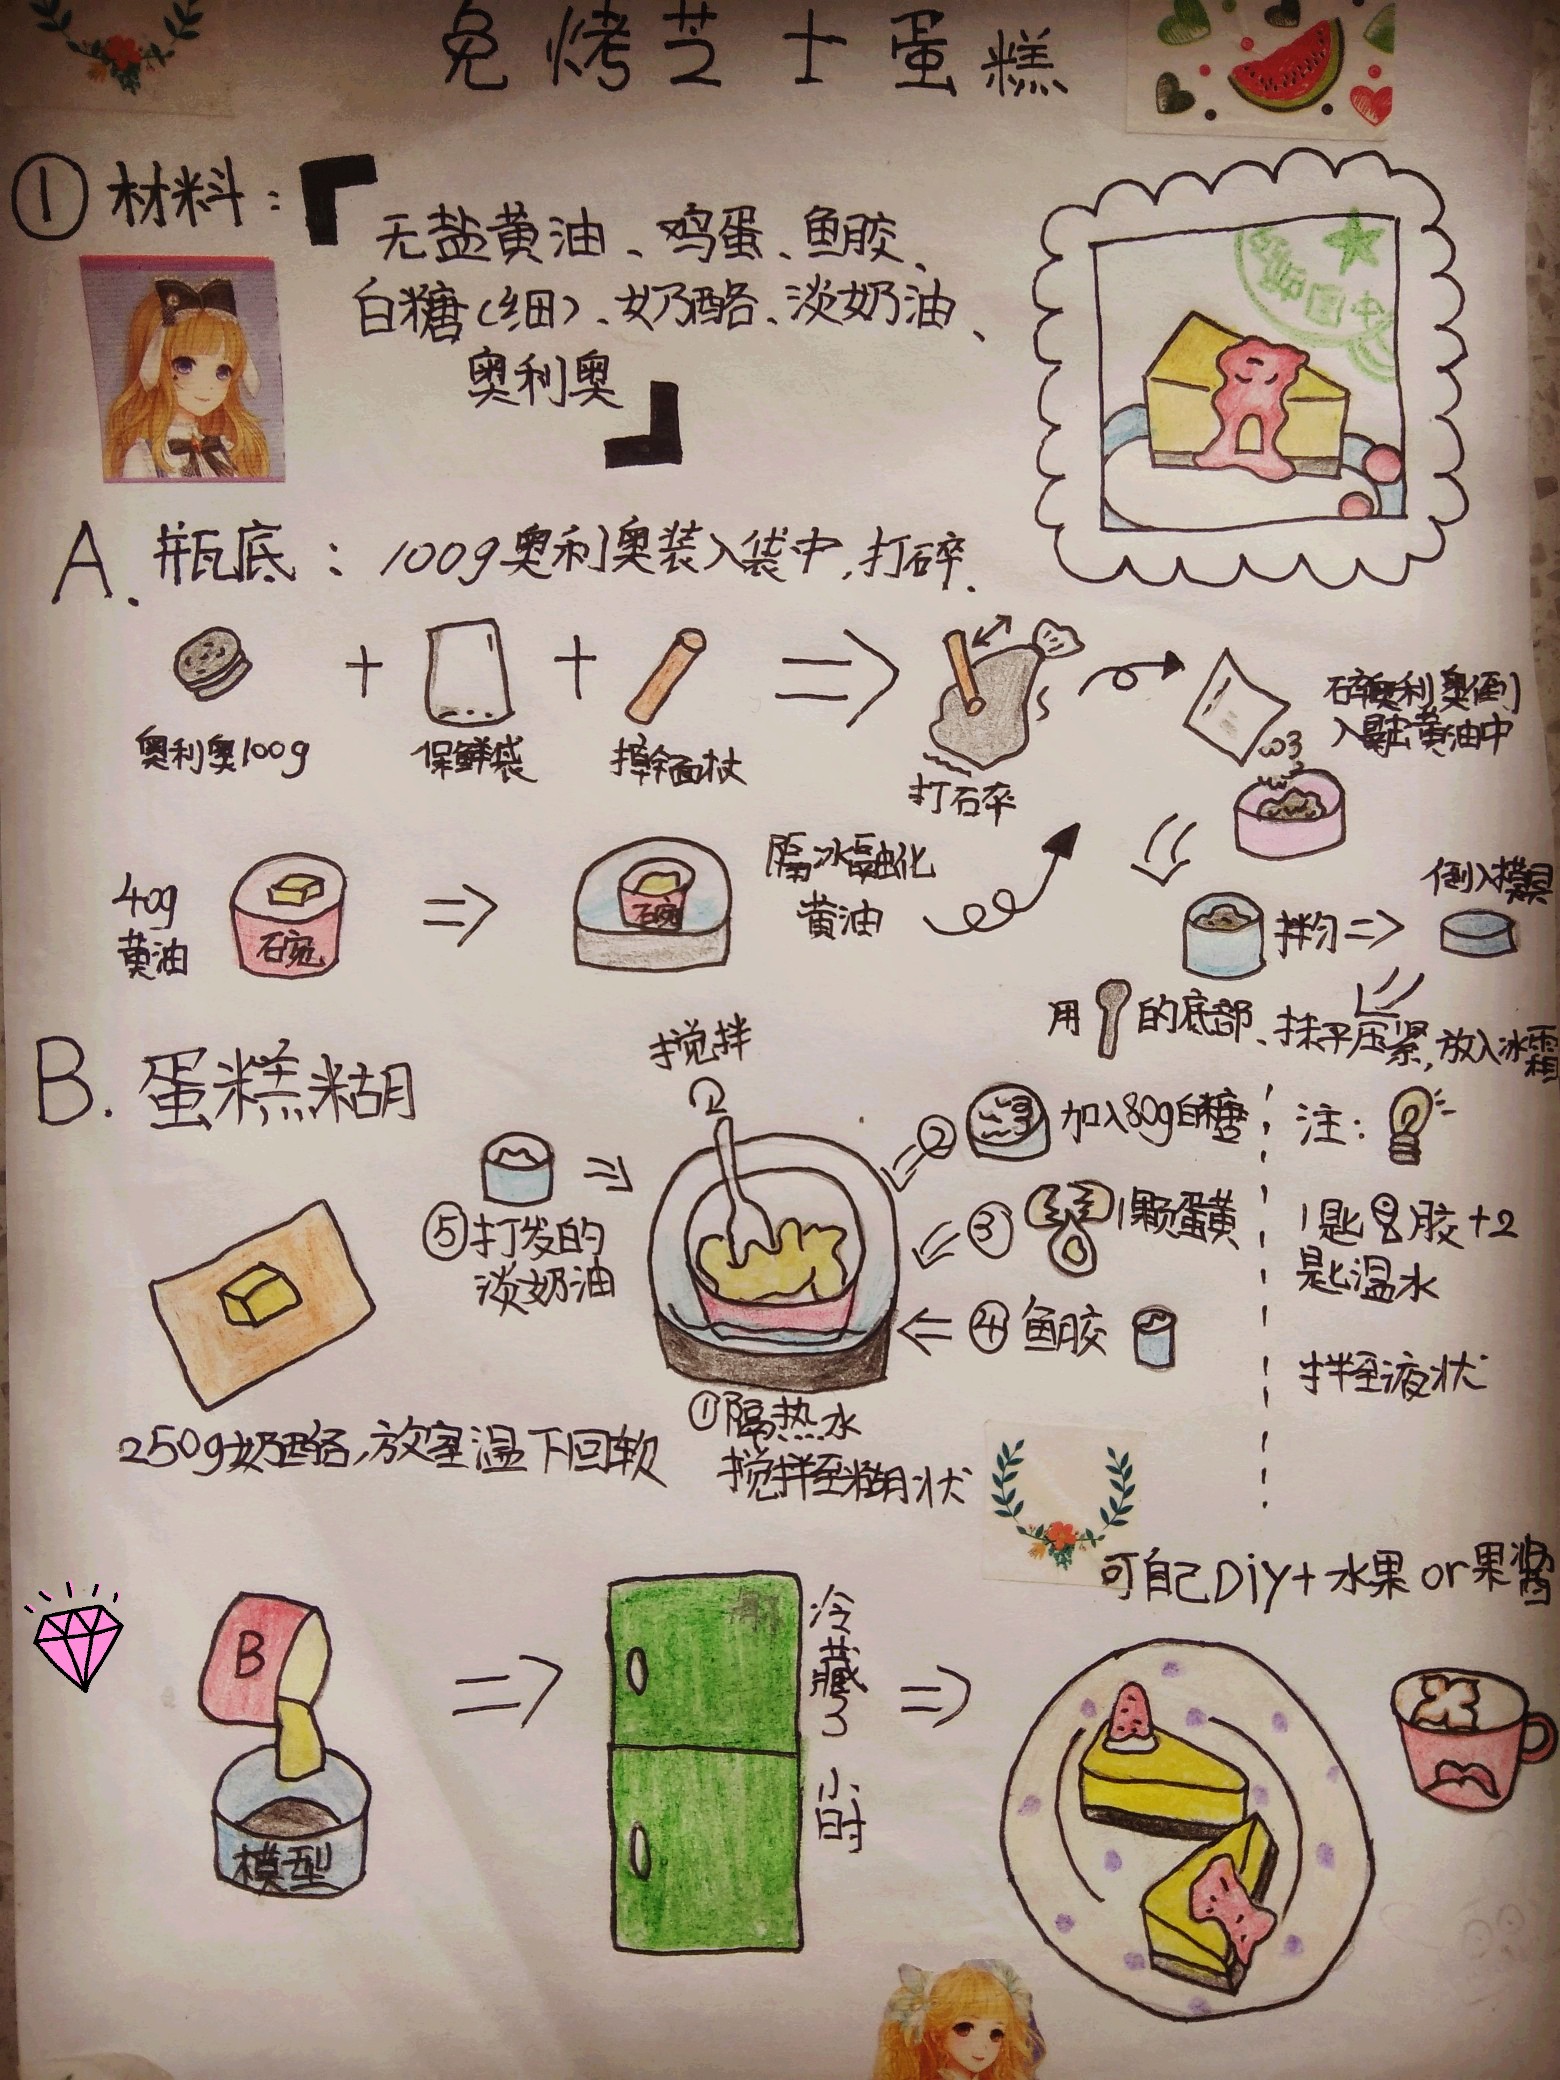 免烤芝士蛋糕
① 材料:
无盐黄油、鸡蛋、鱼胶、
白糖(细)、奶酪、淡奶油、
奥利奥
A. 瓶底: 100g奥利奥装入袋中,打碎.
奥利奥100g
保鲜袋
擀面杖
打碎
碎奥利奥倒
入融黄油中
40g
黄油
碗
碗
隔冰融化
黄油
拌匀
倒入模具
用 的底部、抹平压紧,放入冰霜
B. 蛋糕糊
搅拌
⑤打发的
淡奶油
② 加入80g白糖
③ 1颗蛋黄
④ 鱼胶
①隔热水
搅拌至糊状
250g奶酪,放室温下回软
注:
1匙鱼胶+2
匙温水
拌至液状
可自己Diy+水果or果酱
B
模型
冷藏3小时